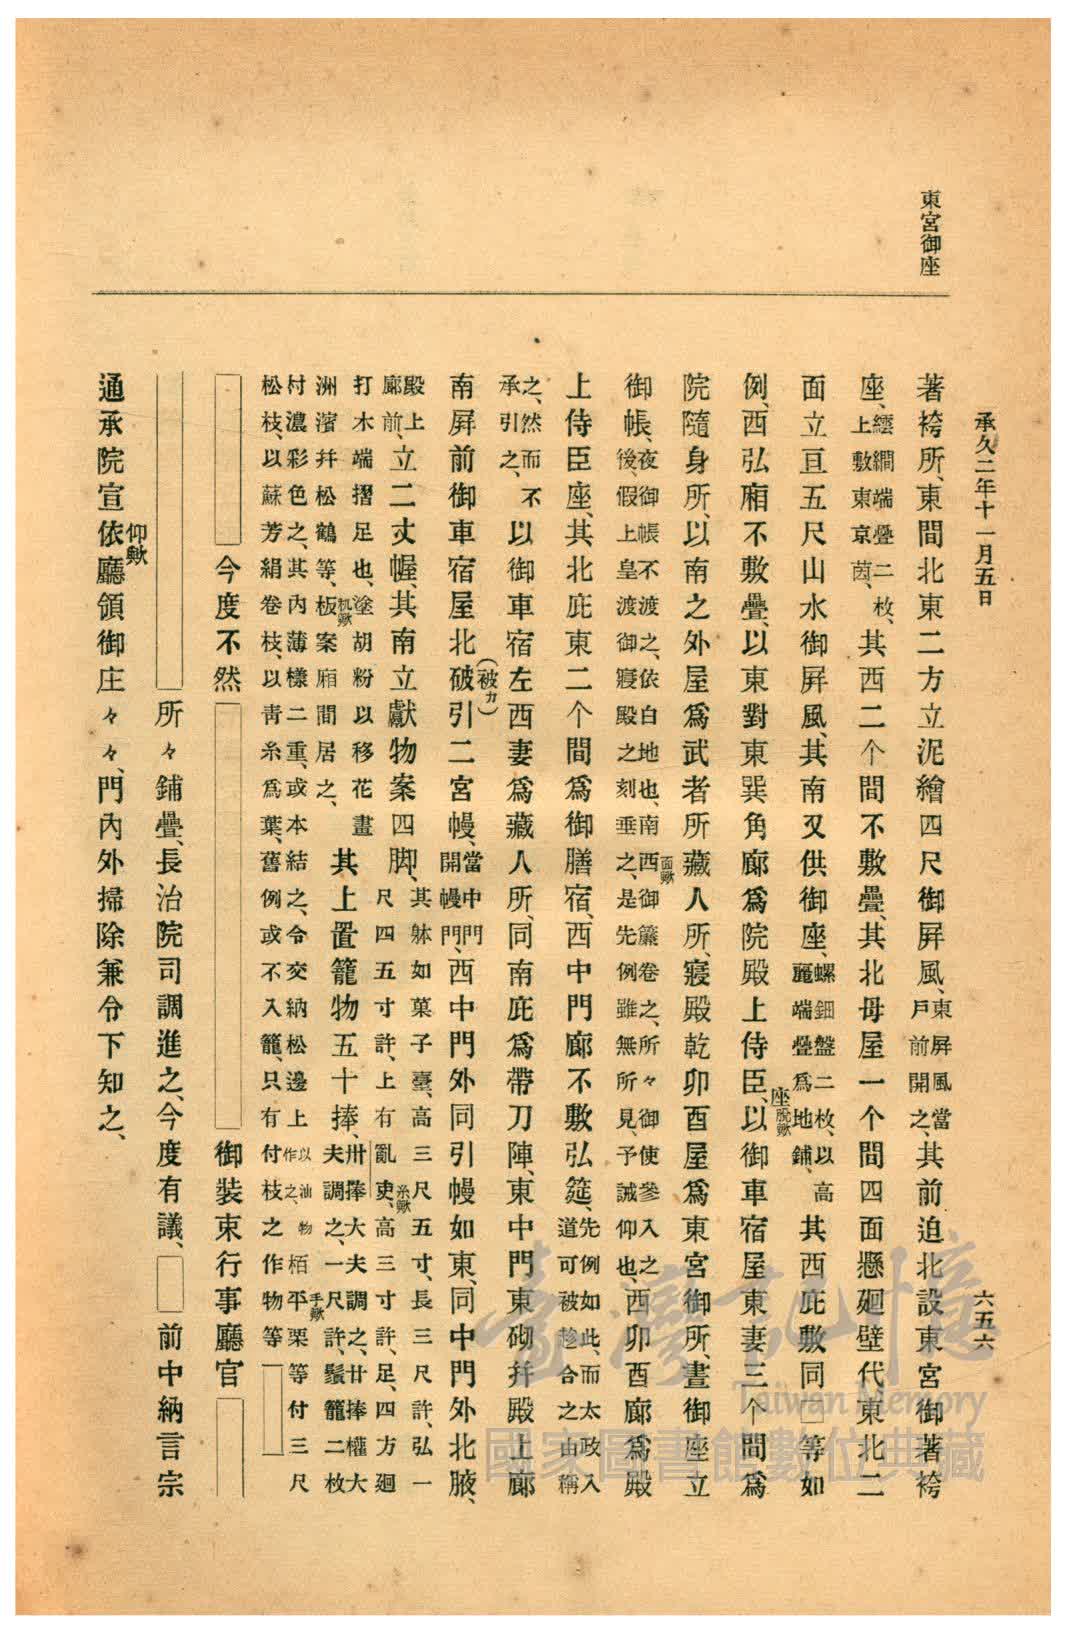 承久二年十一月五日
六五六
東宮御座
著袴所、東間北東二方立泥繪四尺御屏風、東屏風當戶前開之、其前迫北設東宮御著袴
座、繧繝端疊二枚、上敷東京茵、其西二个間不敷疊、其北母屋一个間四面懸廻壁代東北二
面立亘五尺山水御屏風、其南又供御座、螺鈿盤二枚、以高麗端疊爲地鋪、其西庇敷同□等如
例、西弘廂不敷疊、以東對東巽角廊爲院殿上侍臣、座脫歟以御車宿屋東妻三个間爲
院隨身所、以南之外屋爲武者所藏人所、寢殿乾卯酉屋爲東宮御所、晝御座立
御帳、夜御帳不渡之、依白地也、南西面歟御簾卷之、所々御使參入之後、假上皇渡御寢殿之刻垂之、是先例雖無所見、予誡仰也、西卯酉廊爲殿
上侍臣座、其北庇東二个間爲御膳宿、西中門廊不敷弘筵、先例如此、而太政入道可被趁合之由稱
之、然而不承引之、以御車宿左西妻爲藏人所、同南庇爲帶刀陣、東中門東砌幷殿上廊
南屏前御車宿屋北破(被カ)引二宮幔、當中門開幔門、西中門外同引幔如東、同中門外北腋、
殿上廊前、立二丈幄、其南立獻物案四脚、其躰如菓子臺、高三尺五寸、長三尺許、弘一尺四五寸許、上有亂叓、糸歟高三寸許、足、四方廻
打木端摺足也、塗胡粉以移花畫洲濱幷松鶴等、板机歟案廂間居之、其上置籠物五十捧、卅捧大夫調之、廿捧權大夫調之、一尺許、鬚籠二枚
村濃彩色之、其內薄樣二重、或本結之、令交納松邊上以油物作之、栢平手歟栗等付三尺松枝、以蘇芳絹卷枝、以靑糸爲葉、舊例或不入籠、只有付枝之作物等
今度不然 御裝束行事廳官
所々鋪疊、長治院司調進之、今度有議、□前中納言宗
通承院宣依仰歟廳領御庄々々、門內外掃除兼令下知之、
臺灣記憶
Taiwan Memory
國家圖書館數位典藏